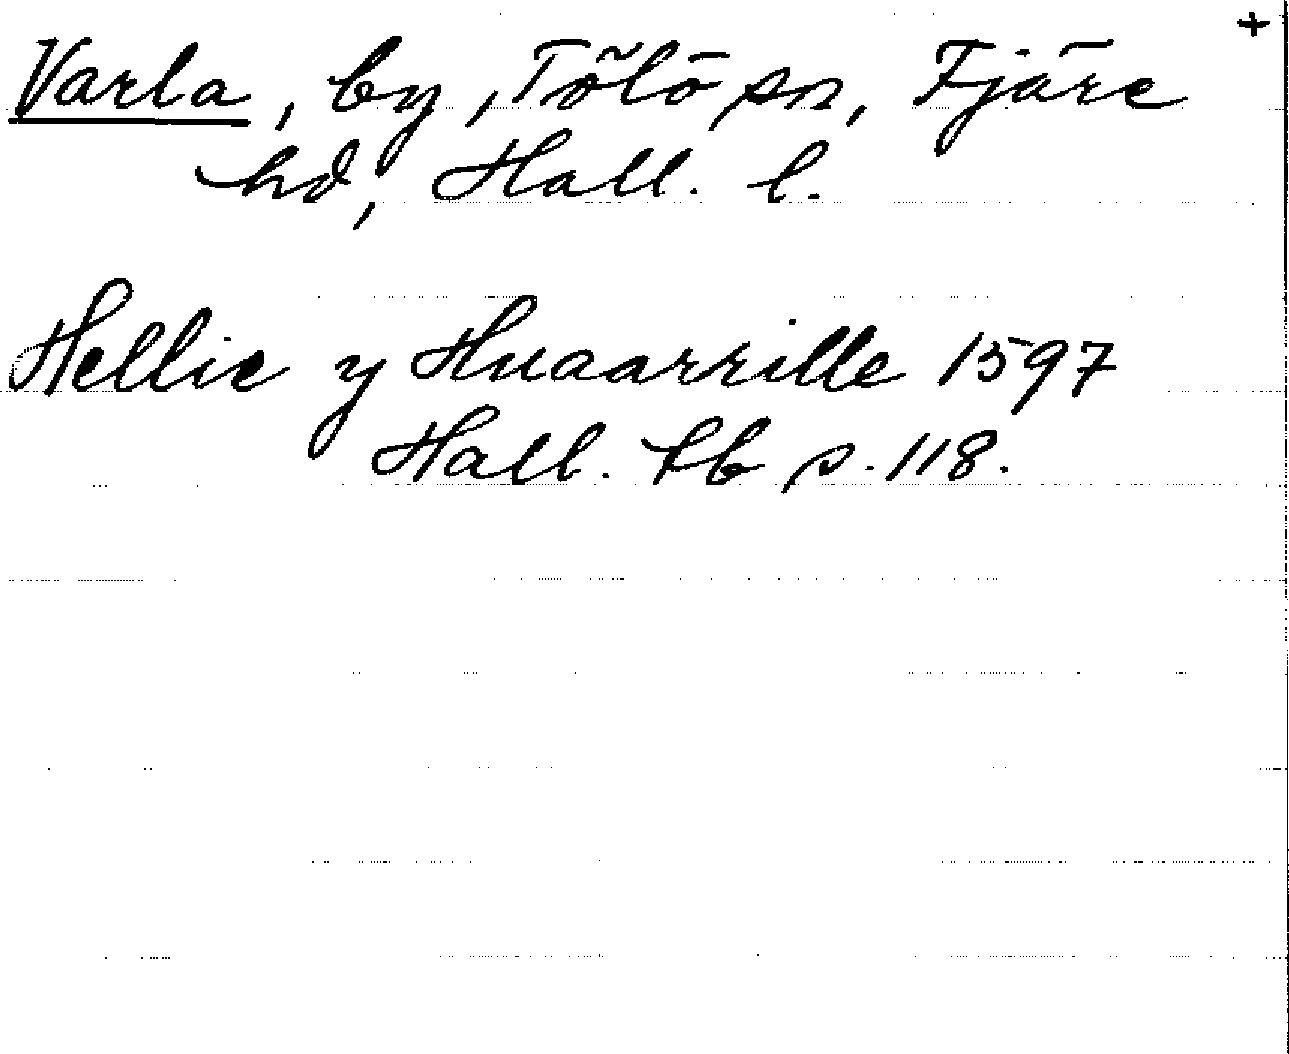 +
Varla, by, Tölö sn, Fjäre
hd, Hall. l.
Hellie y Huaarrille 1597
Hall. tb s. 118.